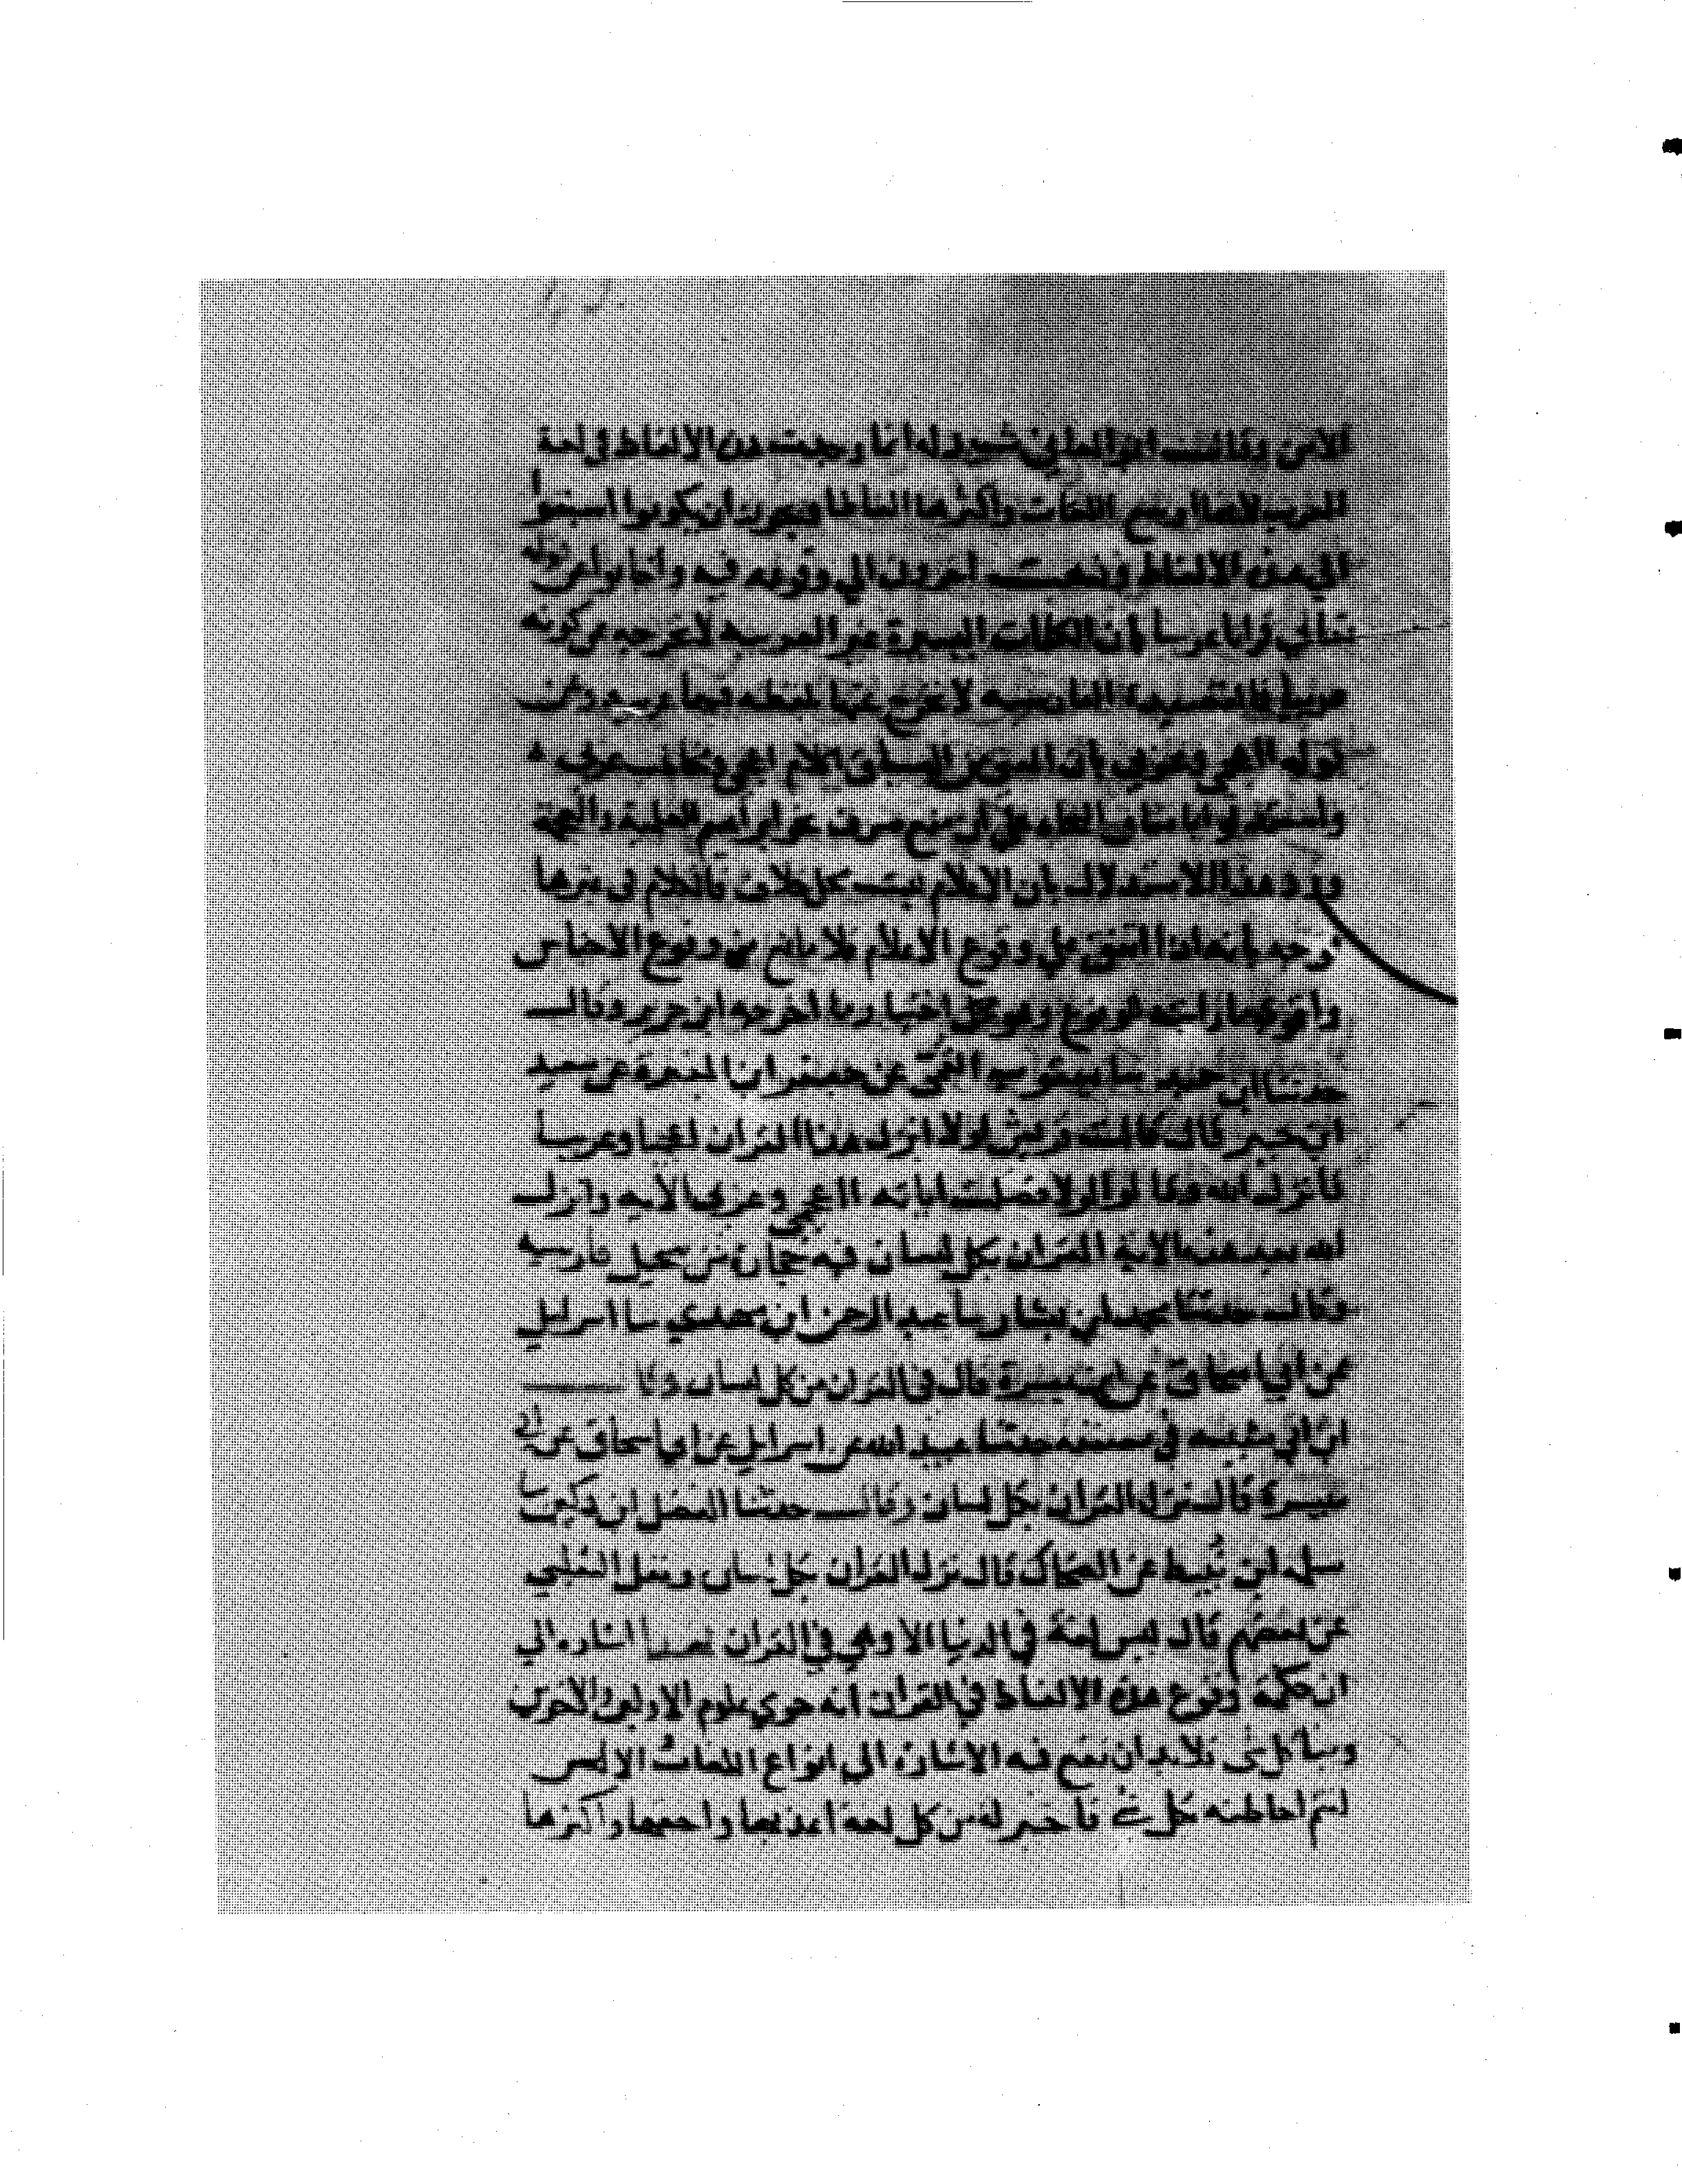 الامن وقالت ابو المعالي شيدله انما وجدت هذه الالفاظ في لغة
العرب لانها اوسع اللغات واكثرها الفاظا ويجوز ان يكونوا سبقوا
الي هذه الالفاظ وذهبت اخرون الي وقوعه فيه واجابوا عن قوله
تعالي قرانا عربيا بان الكلمات اليسيرة بغير العربيه لا تخرجه عن كونه
عربيا فالقصيدة الفارسيه لا تخرج عنها بلفظه فيها عربيه وعن
قوله ااعجمي وعربي بان المعني من السياق اكلام اعجمي ومخاطب عربي
واستدلوا باتفاق النحاه علي ان منع صرف نحو ابراهيم للعلمية والعجمة
ورد هذا الاستدلال بان الاعلام ليست محل خلاف فالكلام في غيرها
وجه بانه اذا اتفق علي وقوع الاعلام فلا مانع من وقوع الاجناس
واقوي ما رايته للوقوع وهو اختيار ما اخرجه ابن جرير وقال
حدثنا ابن حميد ثنا يعقوب القمي عن جعفر ابن المغيرة عن سعيد
ابن جبير قال قالت قريش لولا انزل هذا القران اعجميا وعربيا
فانزل الله وقالوا لولا فصلت اياته ااعجمي وعربي الايه وانزل
الله بعد هذه الاية القران بكل لسان فيه حجارة من سجيل فارسيه
وقال حدثنا محمد ابن بشار ثنا عبد الرحمن ابن مهدي ثنا اسرائيل
عن ابي اسحاق عن ابي ميسرة قال في القران من كل لسان وقا
ابن ابي شيبه في مصنفه حدثنا عبيد الله عن اسرايل عن ابي اسحاق عن ابي
ميسرة قال نزل القران بكل لسان وقال حدثنا الفضل ابن دكين ثنا
سلمه ابن نُبيط عن الضحاك قال نزل القران بكل لسان ونقل الثعلبي
عن بعضهم قال ليس لغة في الدنيا الا وهي في القران فهذا اشاره الي
ان حكمة وقوع هذه الالفاظ في القران انه حوي علوم الاولين والاخرين
ونبا كل شي فلا بد ان تقع فيه الاشاره الي انواع اللغات والالسن
لتتم احاطته بكل شي فاختير له من كل لغة اعذبها واخفها واكثرها